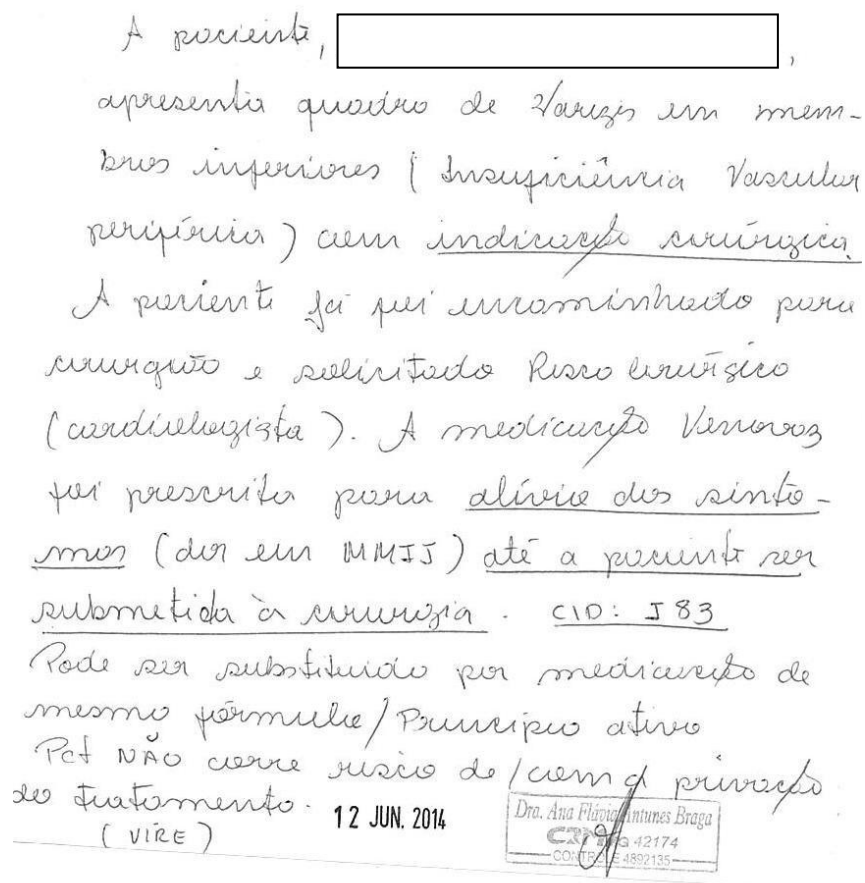 A paciente, ,
apresenta quadro de Varizes em mem-
bros inferiores (Insuficiência Vascular
periférica) com indicação cirúrgica.
A paciente já foi encaminhado para
cirurgião e solicitado Risco Cirúrgico
(cardiologista). A medicação Venovaz
foi prescrita para alívio dos sinto-
mas (dor em MMII) até a paciente ser
submetida à cirurgia. CID: I83
Pode ser substituido por medicação de
mesmo fórmula/Princípio ativo
Pct NÃO corre risco de/com a privação
do tratamento.
(VIRE)
12 JUN. 2014
Dra. Ana Flávia Antunes Braga
CRM G 42174
CONTROLE 4892135